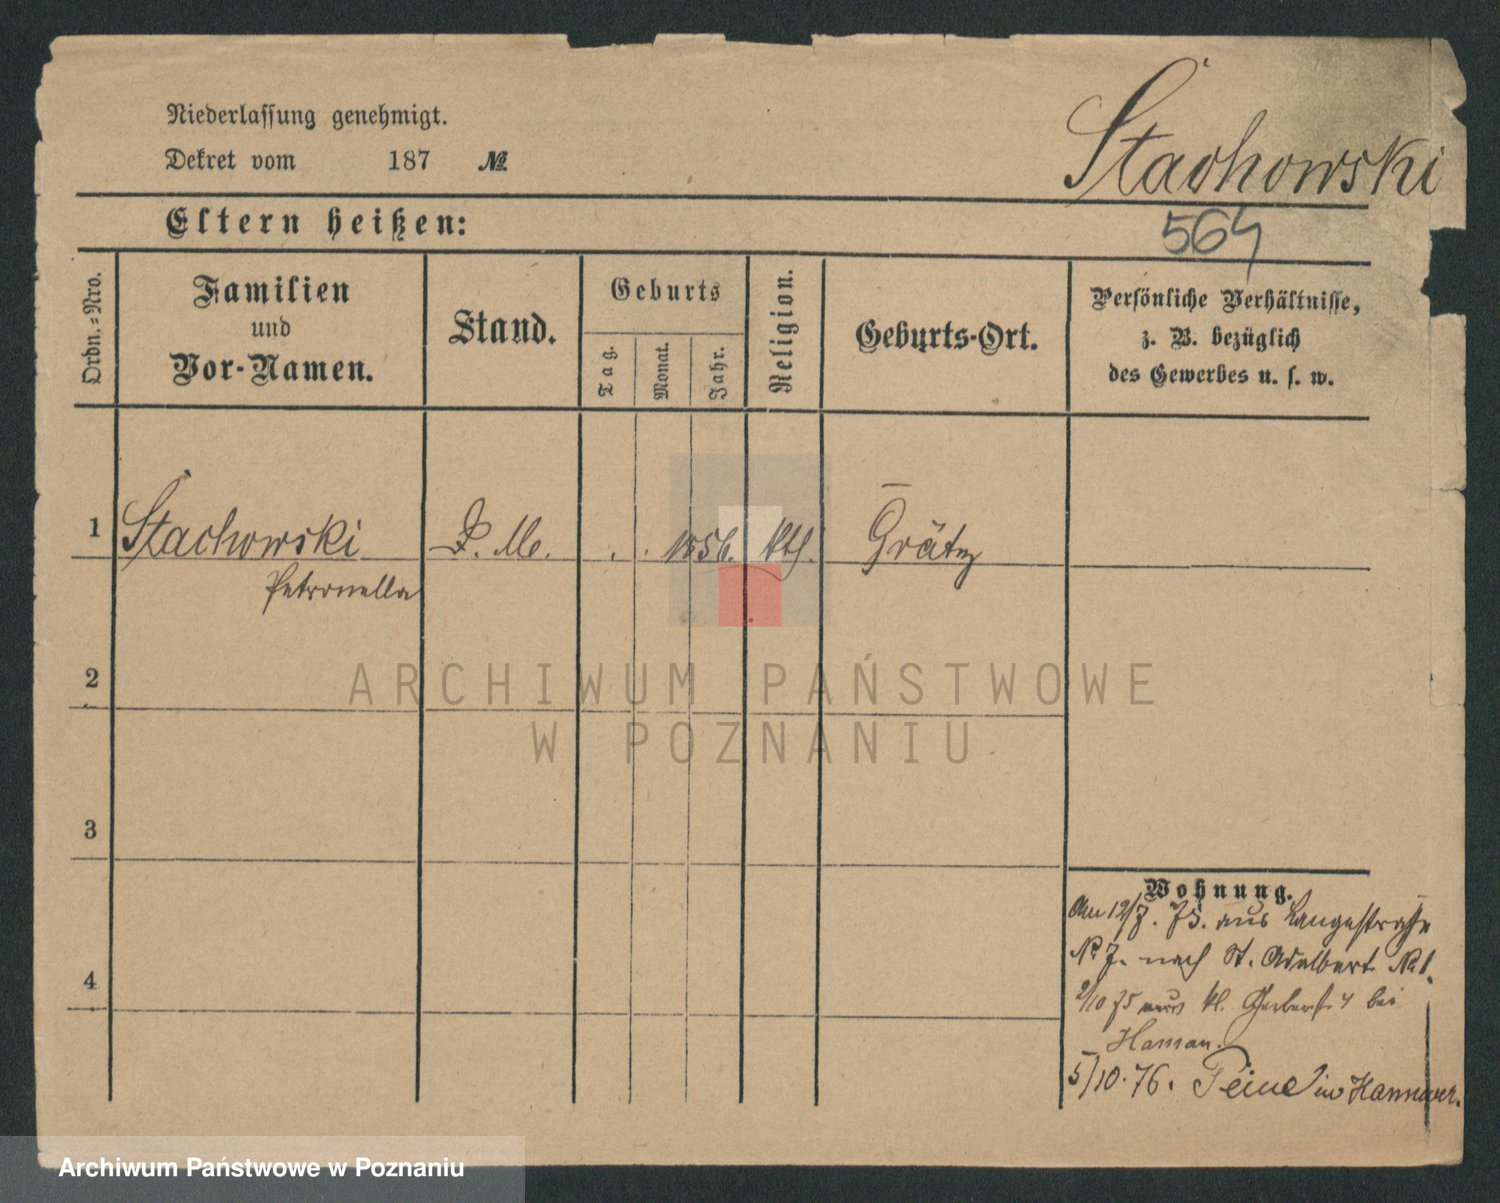 Niederlassung genehmigt.
Dekret vom 187 №
Stachowski
Eltern heißen:
564
Ordn.-Nro.
Familien
und
Vor-Namen.
Stand.
Geburts
Tag.
Monat.
Jahr.
Religion.
Geburts-Ort.
Persönliche Verhältnisse,
z. B. bezüglich
des Gewerbes u. s. w.
1 Stachowski D. M. . . 1856. kth. Grätz
Petronella
2
ARCHIWUM PAŃSTWOWE
W POZNANIU
3
Wohnung.
Am 12/7. 75. aus Langestraße
№ 7. nach St. Adalbert № 1.
4
2/10 75 aus kl. Gerberst. 4 bei
Haman.
5/10. 76. Peine in Hannover.
Archiwum Państwowe w Poznaniu